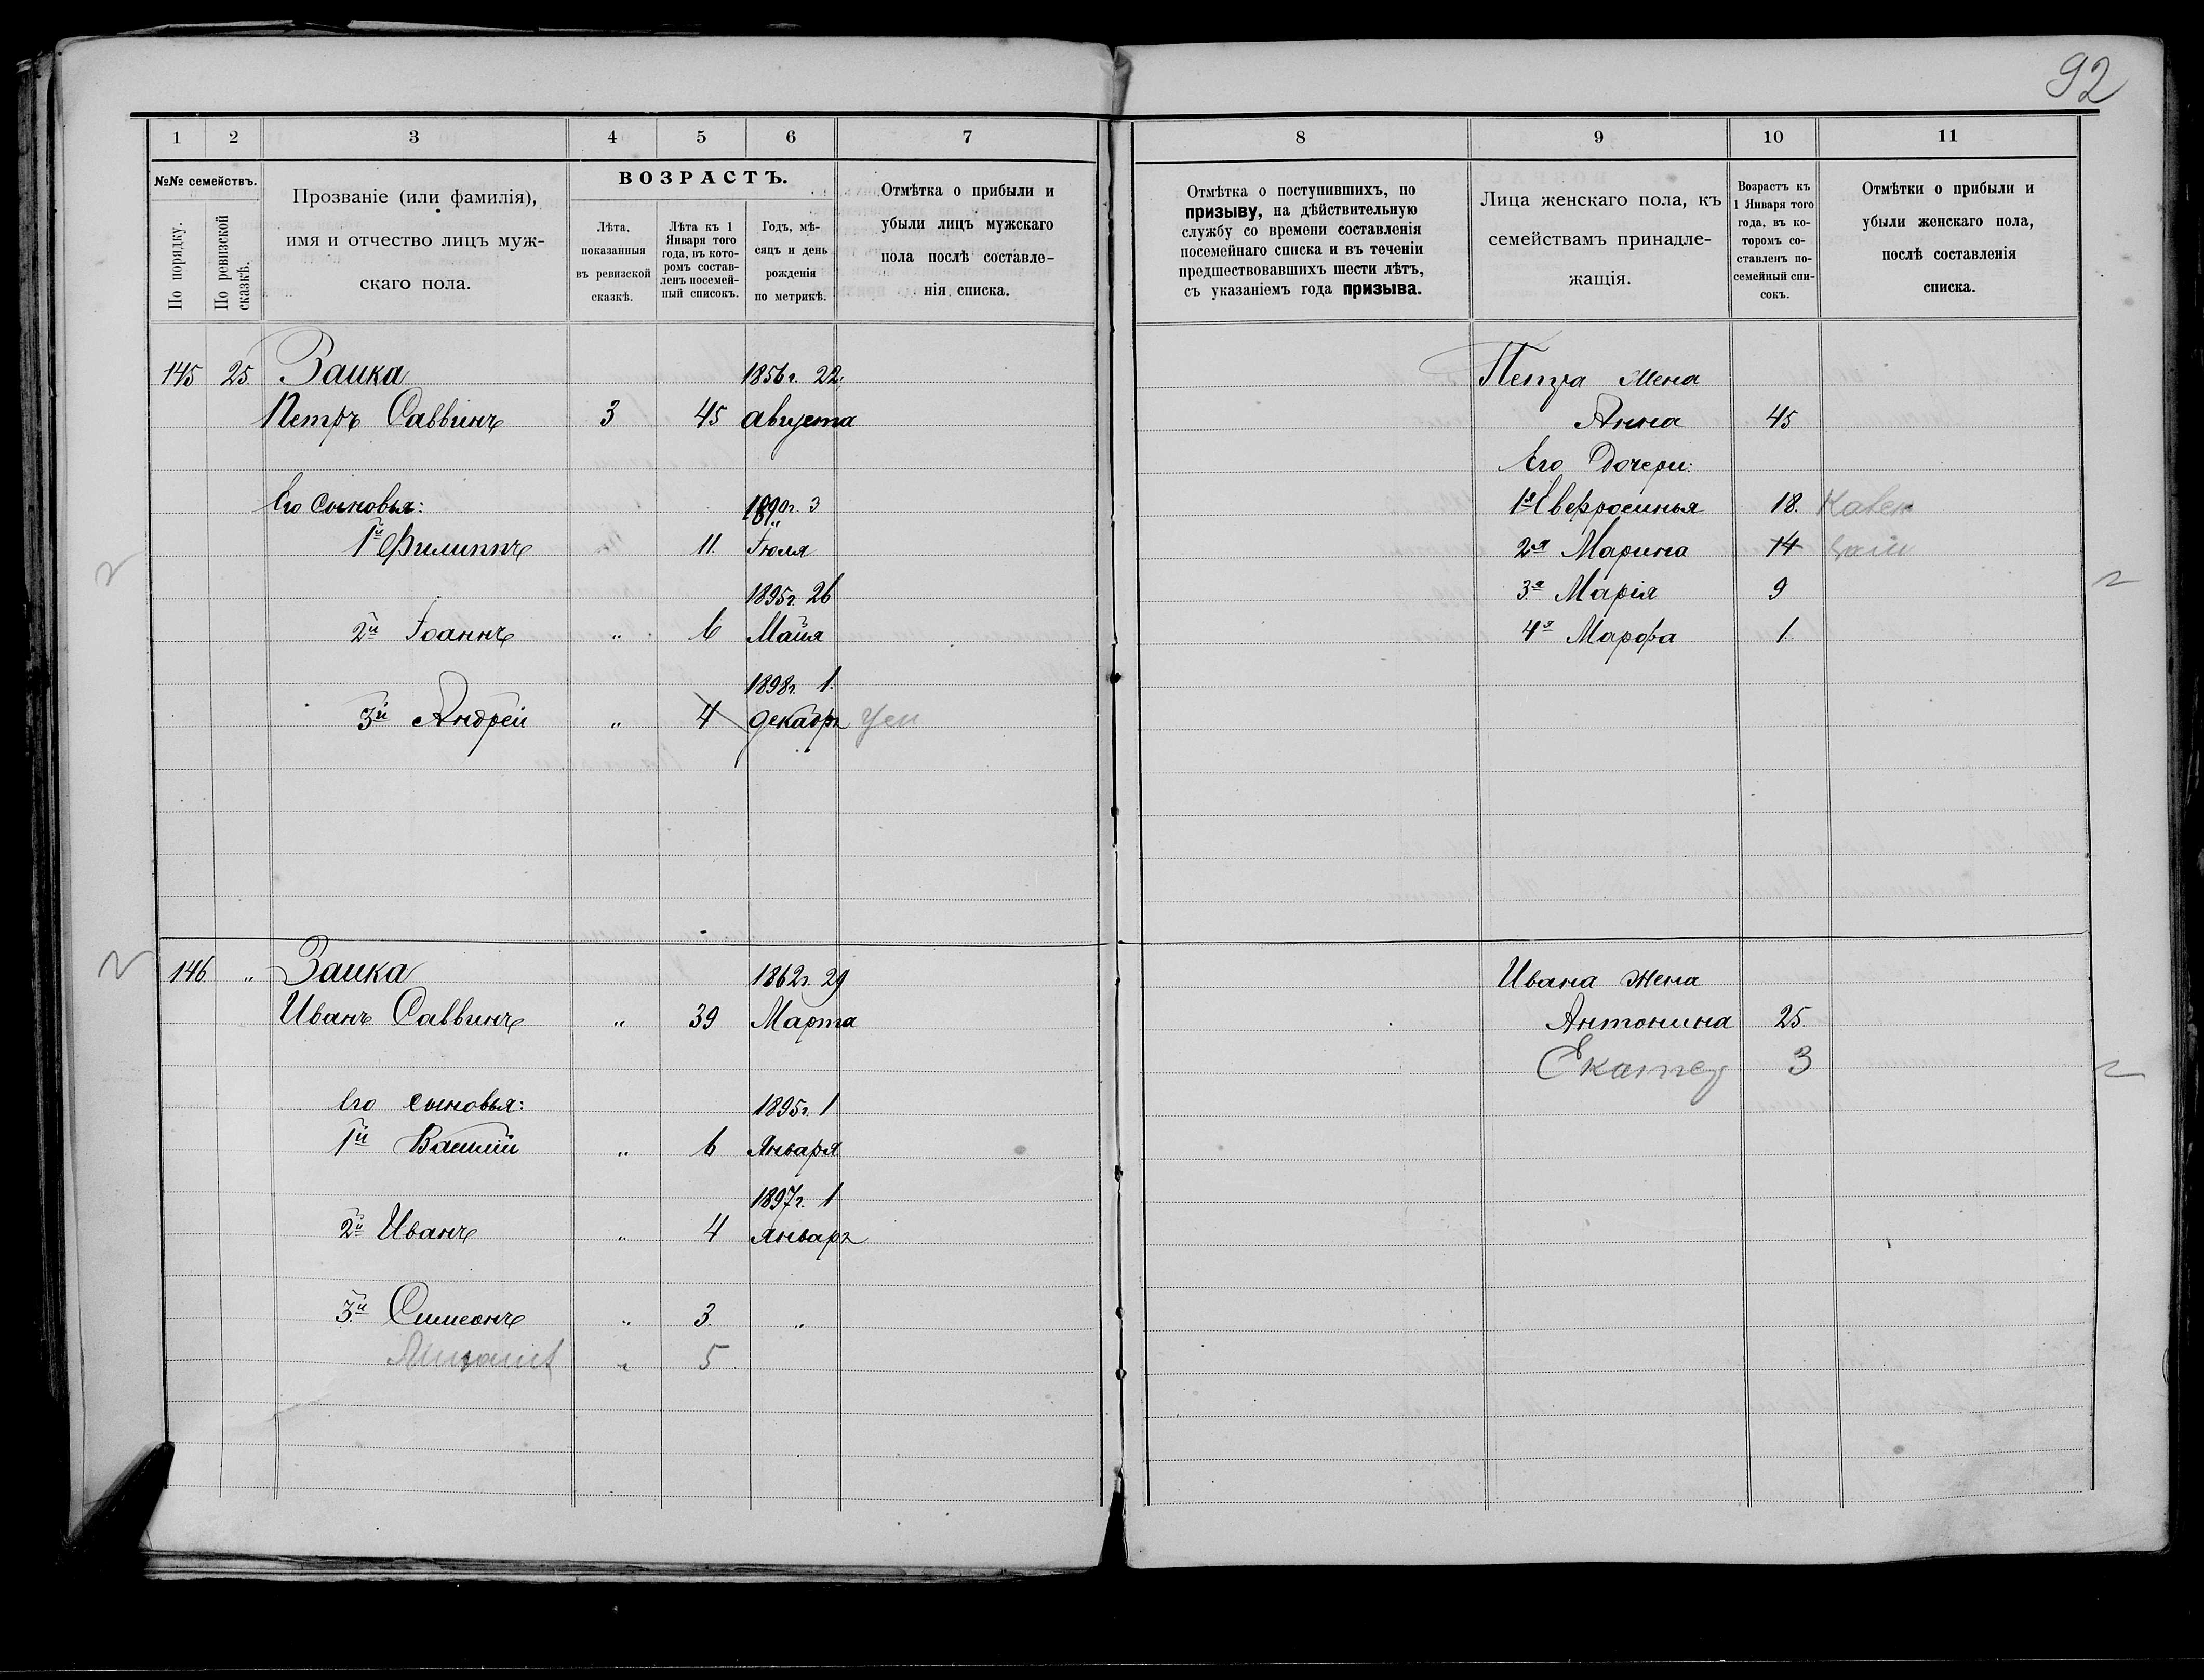 92
1 2 3 4 5 6 7
№№ семействъ.
По порядку.
По ревизской сказкѣ.
Прозваніе (или фамилія),
имя и отчество лицъ муж-
скаго пола.
ВОЗРАСТЪ.
Лѣта,
показанныя
въ ревизской
сказкѣ.
Лѣта къ 1
Января того
года, въ кото-
ромъ состав-
ленъ посемей-
ный списокъ.
Годъ, мѣ-
сяцъ и день
рожденія
по метрикѣ.
Отмѣтка о прибыли и
убыли лицъ мужскаго
пола послѣ составле-
нія списка.
145 25 Заика 1856г. 22.
Петръ Саввинъ 3 45 августа
Его сыновья: 1890г. 3
1й Филиппъ 11. Іюля
1895г. 26
2й Іоаннъ " 6 Майя
1898г. 1.
3й Андрей " 4 декабр
146. " Заика 1862г. 29
Иванъ Саввинъ " 39 Марта
Его сыновья: 1895г. 1
1й Василій " 6 Января
1897г. 1
2й Иванъ " 4 Январ
3й Симеонъ " 3. "
" 5
8 9 10 11
Отмѣтка о поступившихъ, по
призыву, на дѣйствительную
службу со времени составленія
посемейнаго списка и въ теченіи
предшествовавшихъ шести лѣтъ,
съ указаніемъ года призыва.
Лица женскаго пола, къ
семействамъ принадле-
жащія.
Возрастъ къ
1 Января того
года, въ ко-
торомъ со-
ставленъ по-
семейный спи-
сокъ.
Отмѣтки о прибыли и
убыли женскаго пола,
послѣ составленія
списка.
Петра жена
Анна 45
Его Дочери:
1я Евфросинья 18.
2я Марина 14
3я Марія 9
4я Марфа 1.
Ивана жена
Антонина 25.
Екатер 3